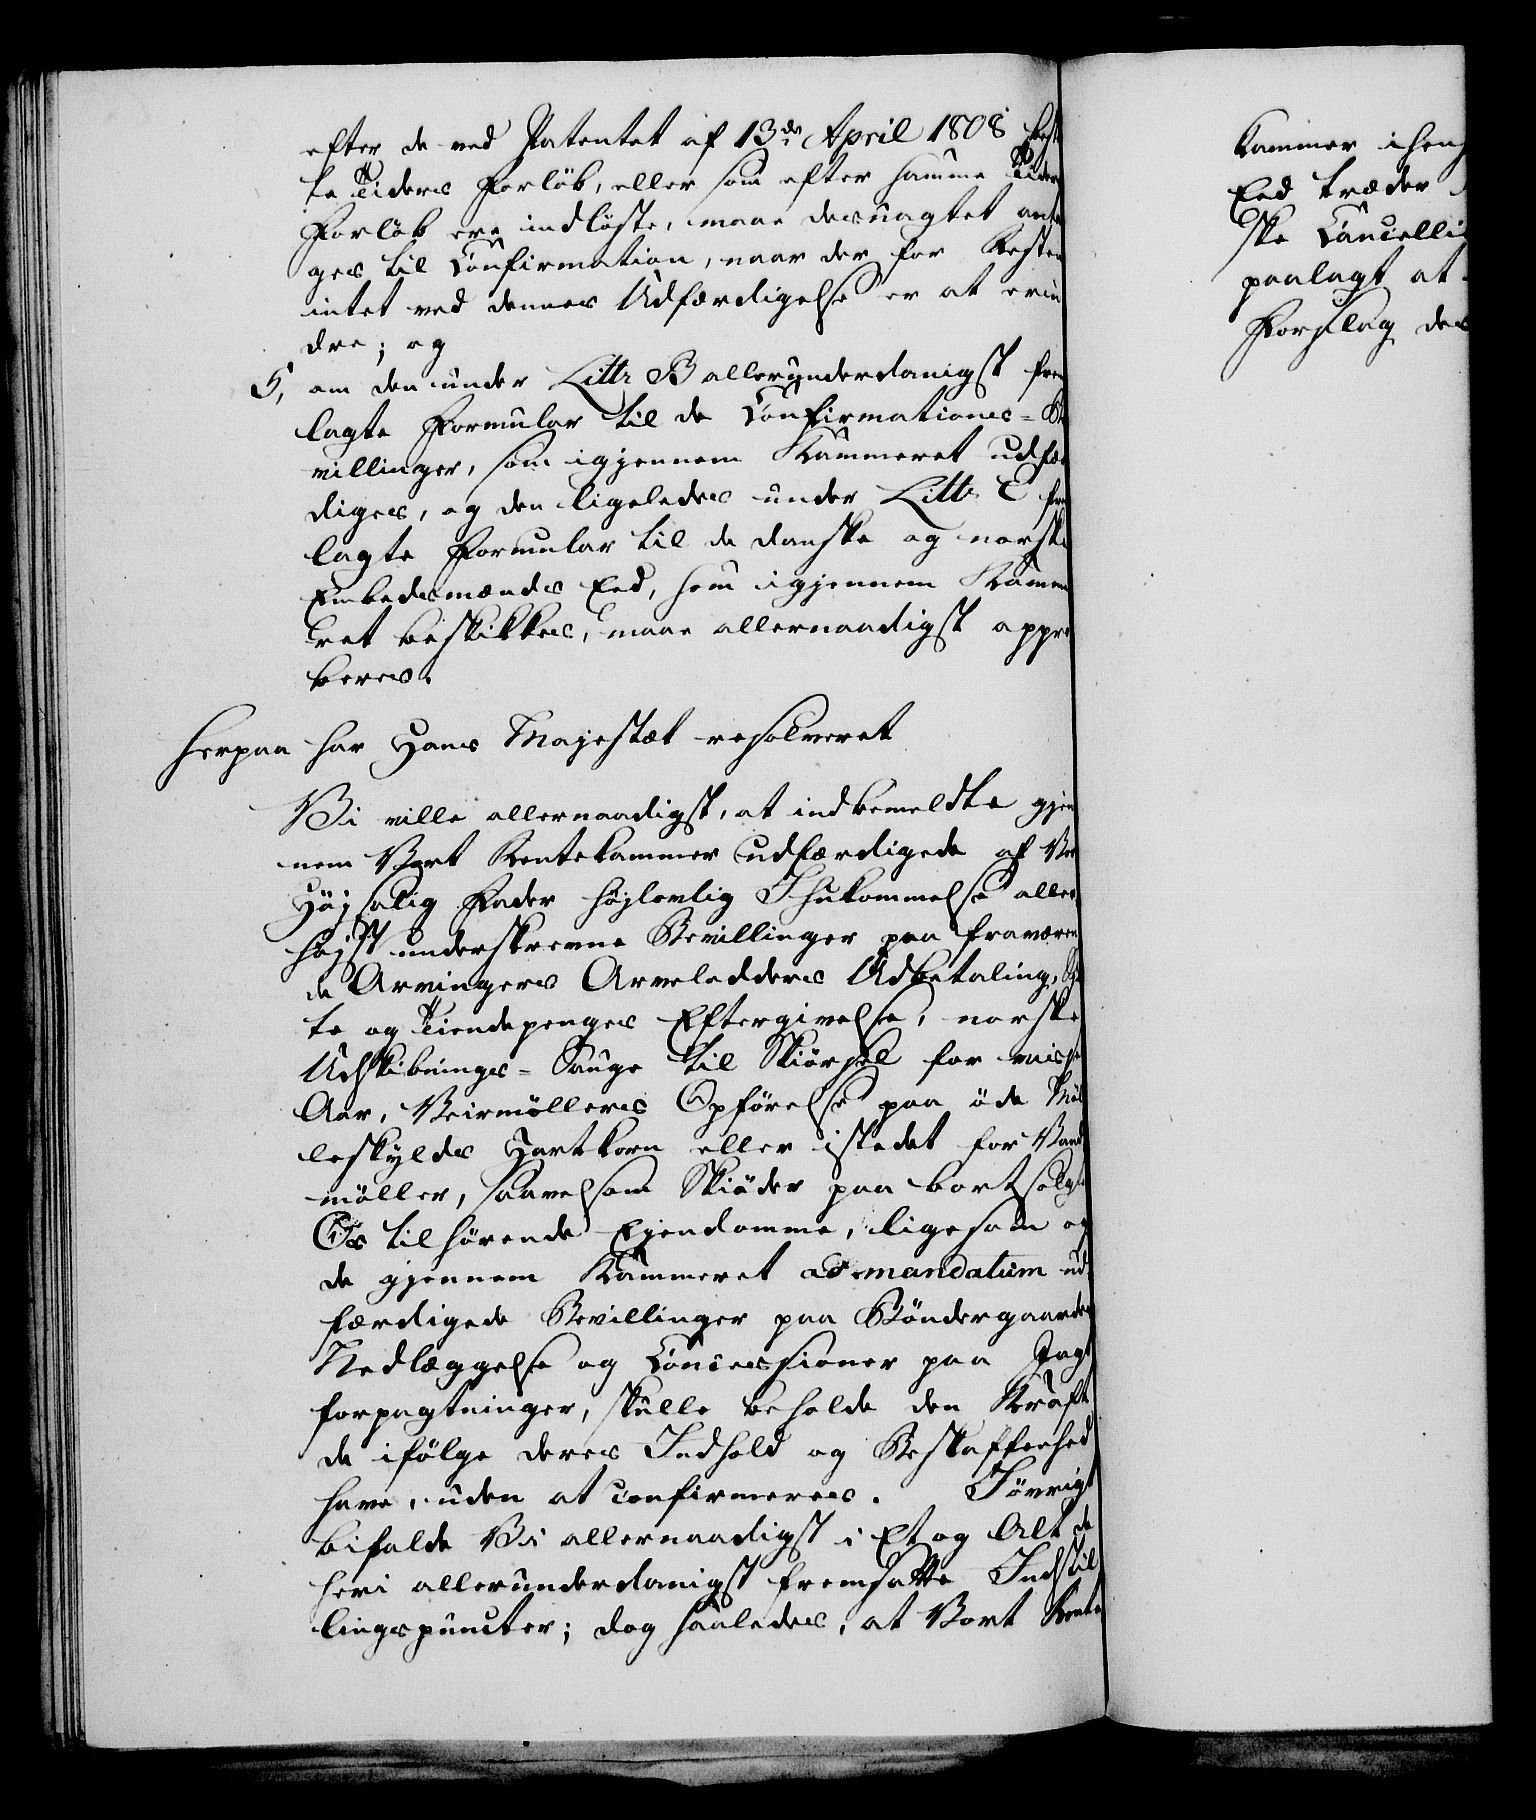 efter de ved Patentet af 13de April 1808 best
te Tiders Forløb, eller som efter samme Tiders
Forløb ere indløste, maae desuagtet anta
ges til Confirmation, naar der for Resten
intet ved dennes Udfærdigelse er at erin
dre; og
5, om den under Littr B allerunderdanigst frem
lagte Formular til de Confirmations-Be
villinger, som igjennem Kammeret udfær
diges, og den ligeledes under Littr C frem
lagte Formular til de danske og norske
Embedsmænds Eed, som igjennem Kamme
ret beskikkes, maae allernaadigst appro
beres.
Herpaa har Hans Majestæt resolveret
Vi ville allernaadigst, at indbemeldte gjen
nem Vort Rentekammer udfærdigede af Vor
Højsalig Fader højlovlig Ihukommelse aller
højst underskrevne Bevillinger paa fraværen
de Arvingers Arvelodders Udbetaling,
te og Tiendepenges Eftergivelse, norske
Udskibnings-Sauge til Skiørsel for visse
Aar, Veirmøllers Opførelse paa øde Møl
leskylds Hartkorn eller istedet for Vand
møller, saavelsom Skiøder paa bortsolgte
Os tilhørende Ejendomme, ligesom og
de gjennem Kammeret ad mandatum ud
færdigede Bevillinger paa Bøndergaarders
Nedlæggelse og Concessioner paa Jagt
forpagtninger, skulle beholde den Kraft
de ifølge deres Indhold og Beskaffenhed
have, uden at confirmeres. Iøvrigt
bifalde Vi allernaadigst i Et og Alt de
heri allerunderdanigst fremsatte Indstil
lingspuncter; dog saaledes, at Vort Rente
Kammer ihen
Eed træder
ske Cancelli
paalagt at
Forslag des